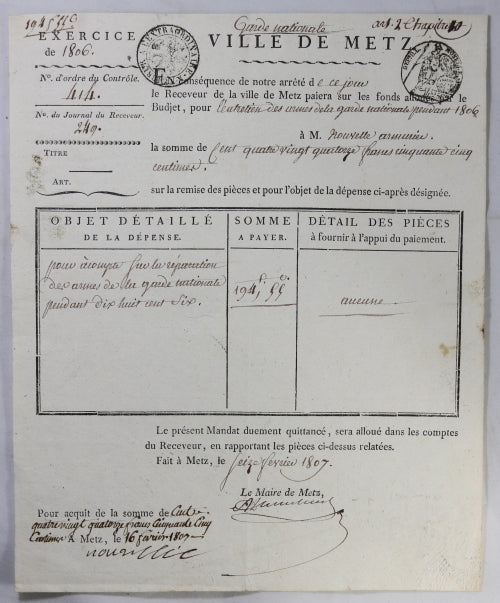 194.55c
Garde nationale
art. 2 Chapitre 10
EXERCICE
de 1806.
VILLE DE METZ
N.º d'ordre du Contrôle.
414.
N.º du Journal du Receveur.
249.
TITRE
ART.
EN conséquence de notre arrêté de ce jour
le Receveur de la ville de Metz paiera sur les fonds alloués par le
Budjet, pour l'entretien des armes de la garde nationale pendant 1806
à M. Nouvelle armurier
la somme de Cent quatre vingt quatorze francs cinquante cinq
centimes.
sur la remise des pièces et pour l'objet de la dépense ci-après désignée.
OBJET DÉTAILLÉ
DE LA DÉPENSE.
SOMME
A PAYER.
DÉTAIL DES PIÈCES
à fournir à l'appui du paiement.
pour àcompte sur la réparation
des armes de la garde nationale
pendant dix huit cent six.
f. c.
194, 55
aucune
Le présent Mandat duement quittancé, sera alloué dans les comptes
du Receveur, en rapportant les pièces ci-dessus relatées.
Fait à Metz, le seize février 1807.
Le Maire de Metz,
Pour acquit de la somme de Cent
quatre vingt quatorze francs Cinquante Cinq
Centimes A Metz, le 16 février 1807